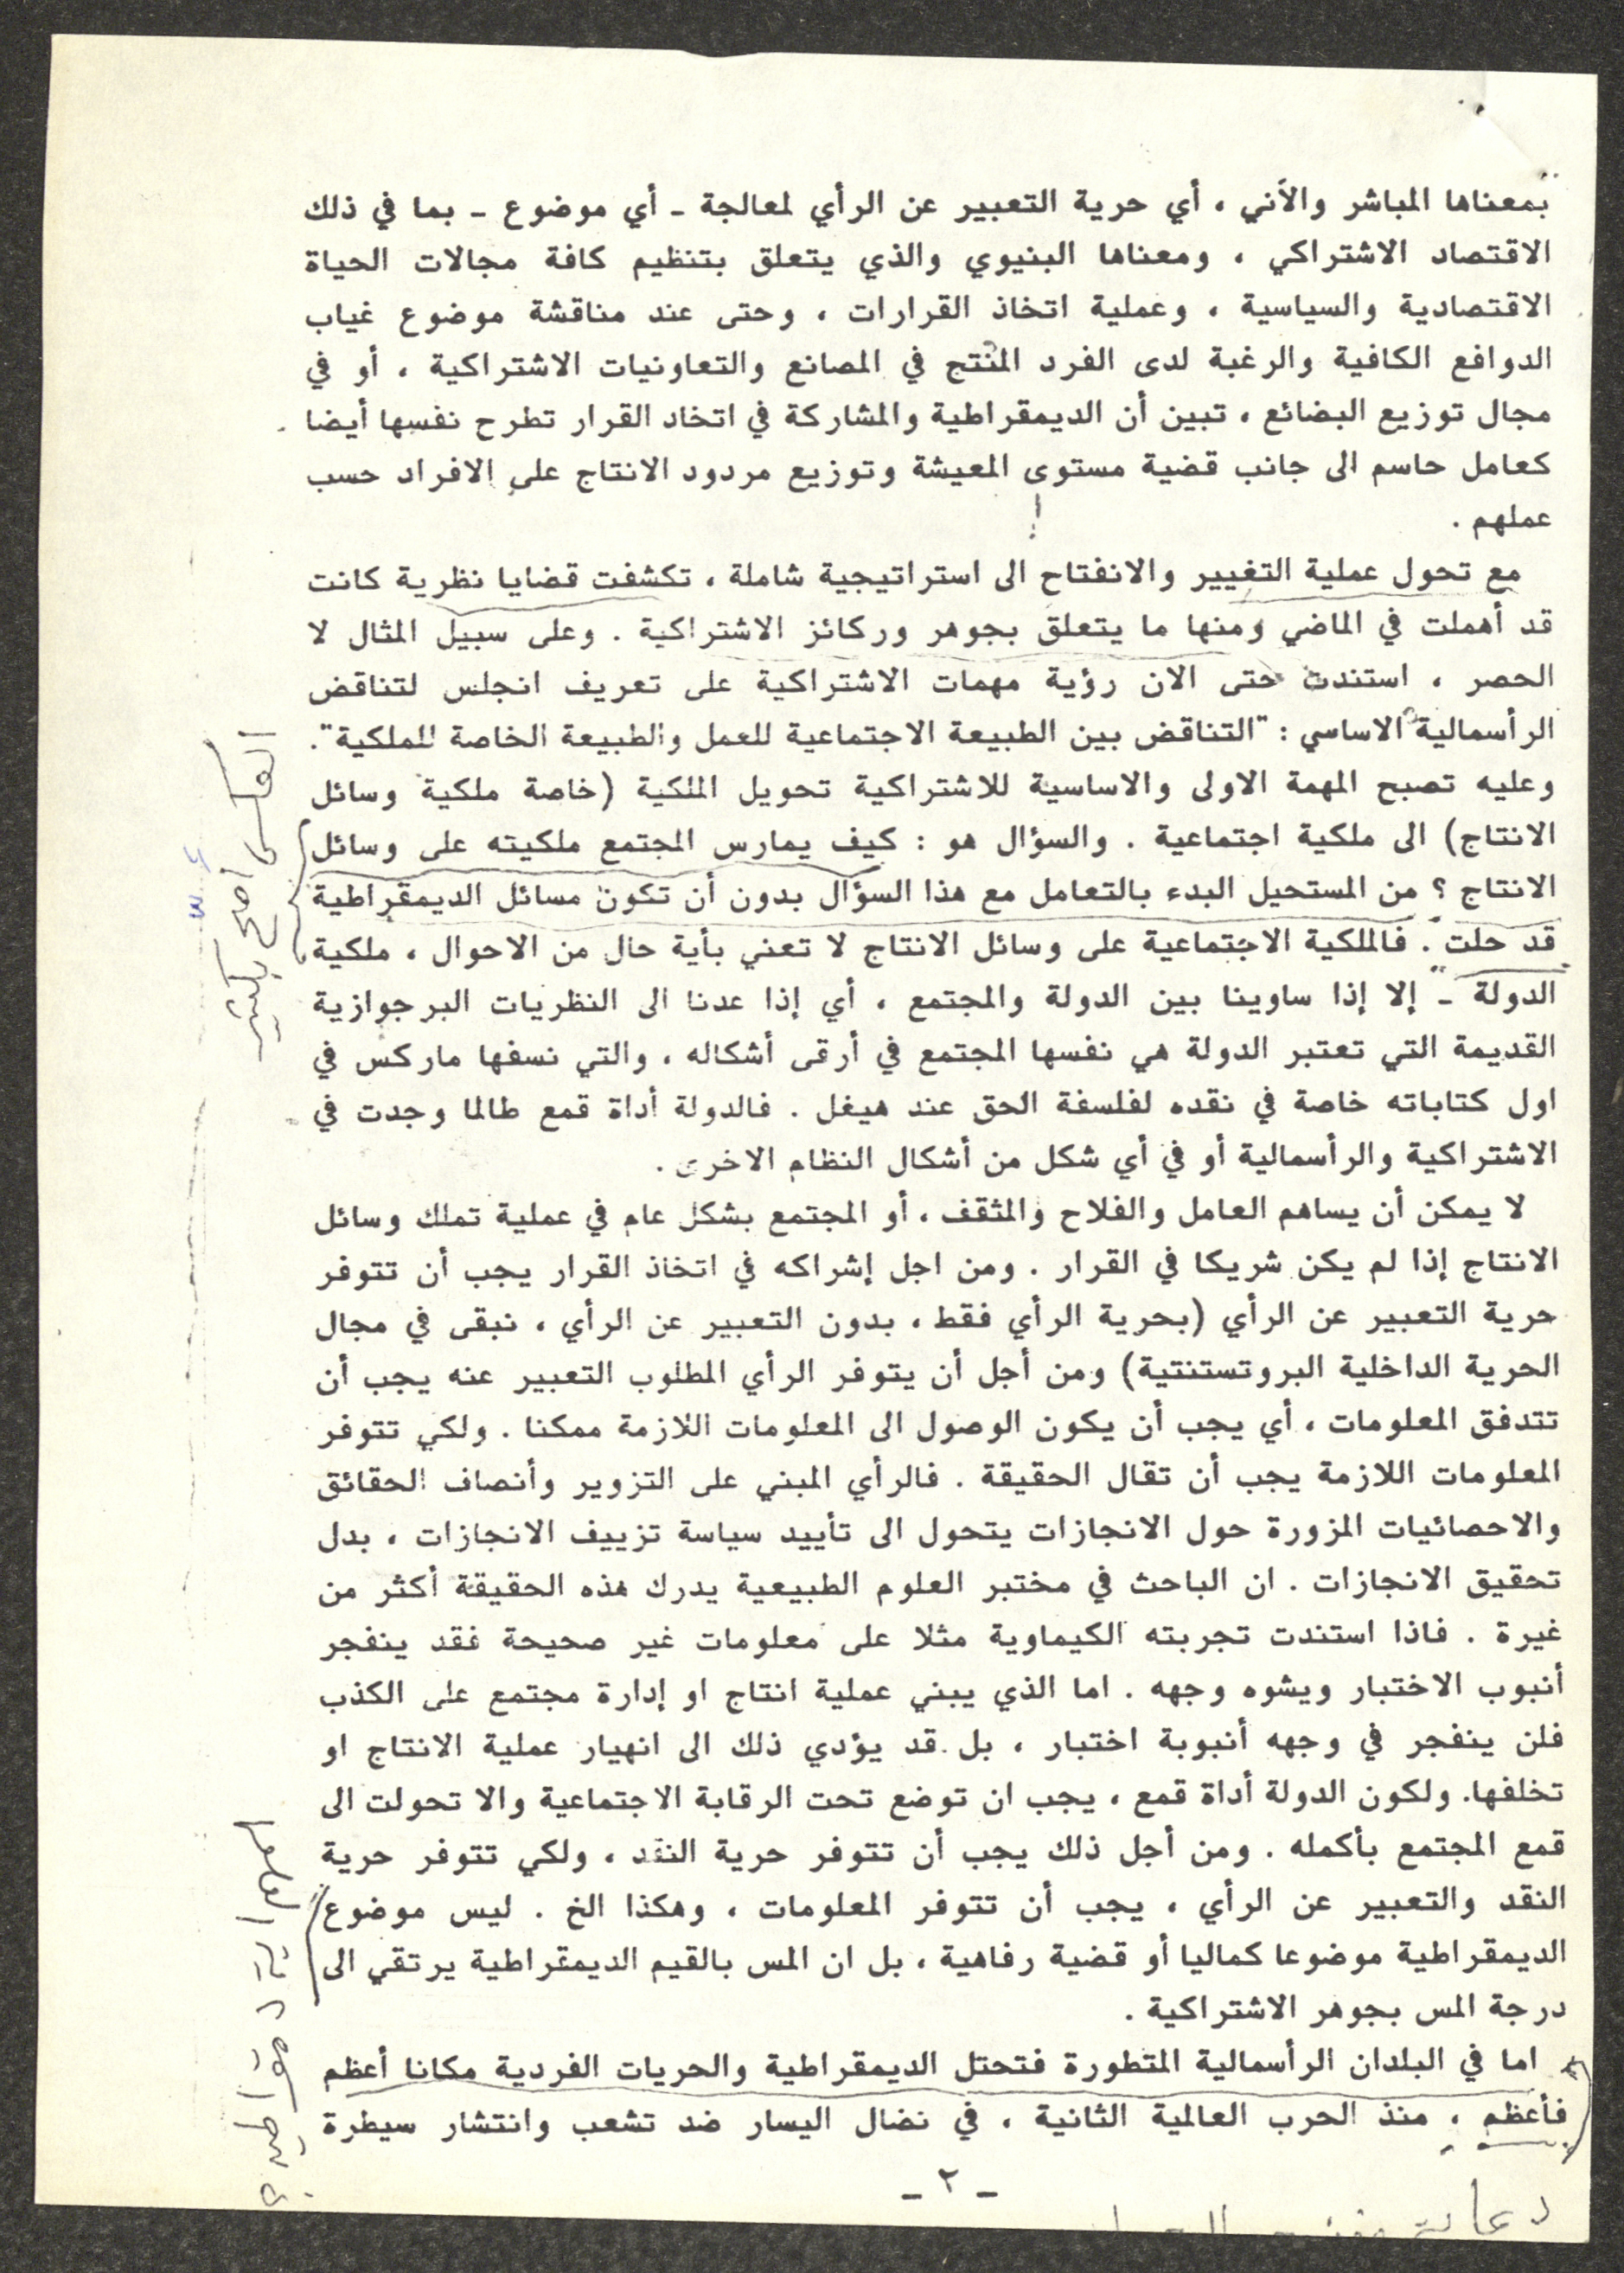 بمعناها المباشر والآني ، أي حرية التعبير عن الرأي لمعالجة ـ أي موضوع ـ بما في ذلك
الاقتصاد الاشتراكي ، ومعناها البنيوي والذي يتعلق بتنظيم كافة مجالات الحياة
الاقتصادية والسياسية ، وعملية اتخاذ القرارات ، وحتى عند مناقشة موضوع غياب
الدوافع الكافية والرغبة لدى الفرد المنتج في المصانع والتعاونيات الاشتراكية ، أو في
مجال توزيع البضائع ، تبين أن الديمقراطية والمشاركة في اتخاد القرار تطرح نفسها أيضا
كعامل حاسم الى جانب قضية مستوى المعيشة وتوزيع مردود الانتاج على الافراد حسب
عملهم .
مع تحول عملية التغيير والانفتاح الى استراتيجية شاملة ، تكشفت قضايا نظرية كانت
قد أهملت في الماضي ومنها ما يتعلق بجوهر وركائز الاشتراكية . وعلى سبيل المثال لا
الحصر ، استندت حتى الان رؤية مهمات الاشتراكية على تعريف انجلس لتناقض
الرأسمالية الاساسي : "التناقض بين الطبيعة الاجتماعية للعمل والطبيعة الخاصة للملكية".
وعليه تصبح المهمة الاولى والاساسية للاشتراكية تحويل الملكية (خاصة ملكية وسائل
الانتاج) الى ملكية اجتماعية . والسؤال هو : كيف يمارس المجتمع ملكيته على وسائل
الانتاج ؟ من المستحيل البدء بالتعامل مع هذا السؤال بدون أن تكون مسائل الديمقراطية
قد حلت . فالملكية الاجتماعية على وسائل الانتاج لا تعني بأية حال من الاحوال ، ملكية
الدولة ـ إلا إذا ساوينا بين الدولة والمجتمع ، أي إذا عدنا الى النظريات البرجوازية
القديمة التي تعتبر الدولة هي نفسها المجتمع في أرقى أشكاله ، والتي نسفها ماركس في
اول كتاباته خاصة في نقده لفلسفة الحق عند هيغل . فالدولة أداة قمع طالما وجدت في
الاشتراكية والرأسمالية أو في أي شكل من أشكال النظام الاخرى .
لا يمكن أن يساهم العامل والفلاح والمثقف ، أو المجتمع بشكل عام في عملية تملك وسائل
الانتاج إذا لم يكن شريكا في القرار . ومن اجل إشراكه في اتخاذ القرار يجب أن تتوفر
حرية التعبير عن الرأي (بحرية الرأي فقط ، بدون التعبير عن الرأي ، نبقى في مجال
الحرية الداخلية البروتستنتية) ومن أجل أن يتوفر الرأي المطلوب التعبير عنه يجب أن
تتدفق المعلومات ، أي يجب أن يكون الوصول الى المعلومات اللازمة ممكنا . ولكي تتوفر
المعلومات اللازمة يجب أن تقال الحقيقة . فالرأي المبني على التزوير وأنصاف الحقائق
والاحصائيات المزورة حول الانجازات يتحول الى تأييد سياسة تزييف الانجازات ، بدل
تحقيق الانجازات . ان الباحث في مختبر العلوم الطبيعية يدرك هذه الحقيقة أكثر من
غيرة . فاذا استندت تجربته الكيماوية مثلا على معلومات غير صحيحة فقد ينفجر
أنبوب الاختبار ويشوه وجهه . اما الذي يبني عملية انتاج او إدارة مجتمع على الكذب
فلن ينفجر في وجهه أنبوبة اختبار ، بل قد يؤدي ذلك الى انهيار عملية الانتاج او
تخلفها. ولكون الدولة أداة قمع ، يجب ان توضع تحت الرقابة الاجتماعية والا تحولت الى
قمع المجتمع بأكمله . ومن أجل ذلك يجب أن تتوفر حرية النقد ، ولكي تتوفر حرية
النقد والتعبير عن الرأي ، يجب أن تتوفر المعلومات ، وهكذا الخ . ليس موضوع
الديمقراطية موضوعا كماليا أو قضية رفاهية ، بل ان المس بالقيم الديمقراطية يرتقي الى
درجة المس بجوهر الاشتراكية .
اما في البلدان الرأسمالية المتطورة فتحتل الديمقراطية والحريات الفردية مكانا أعظم
فأعظم ، منذ الحرب العالمية الثانية ، في نضال اليسار ضد تشعب وانتشار سيطرة
ـ ٢ ـ
العكس أصح بكثير